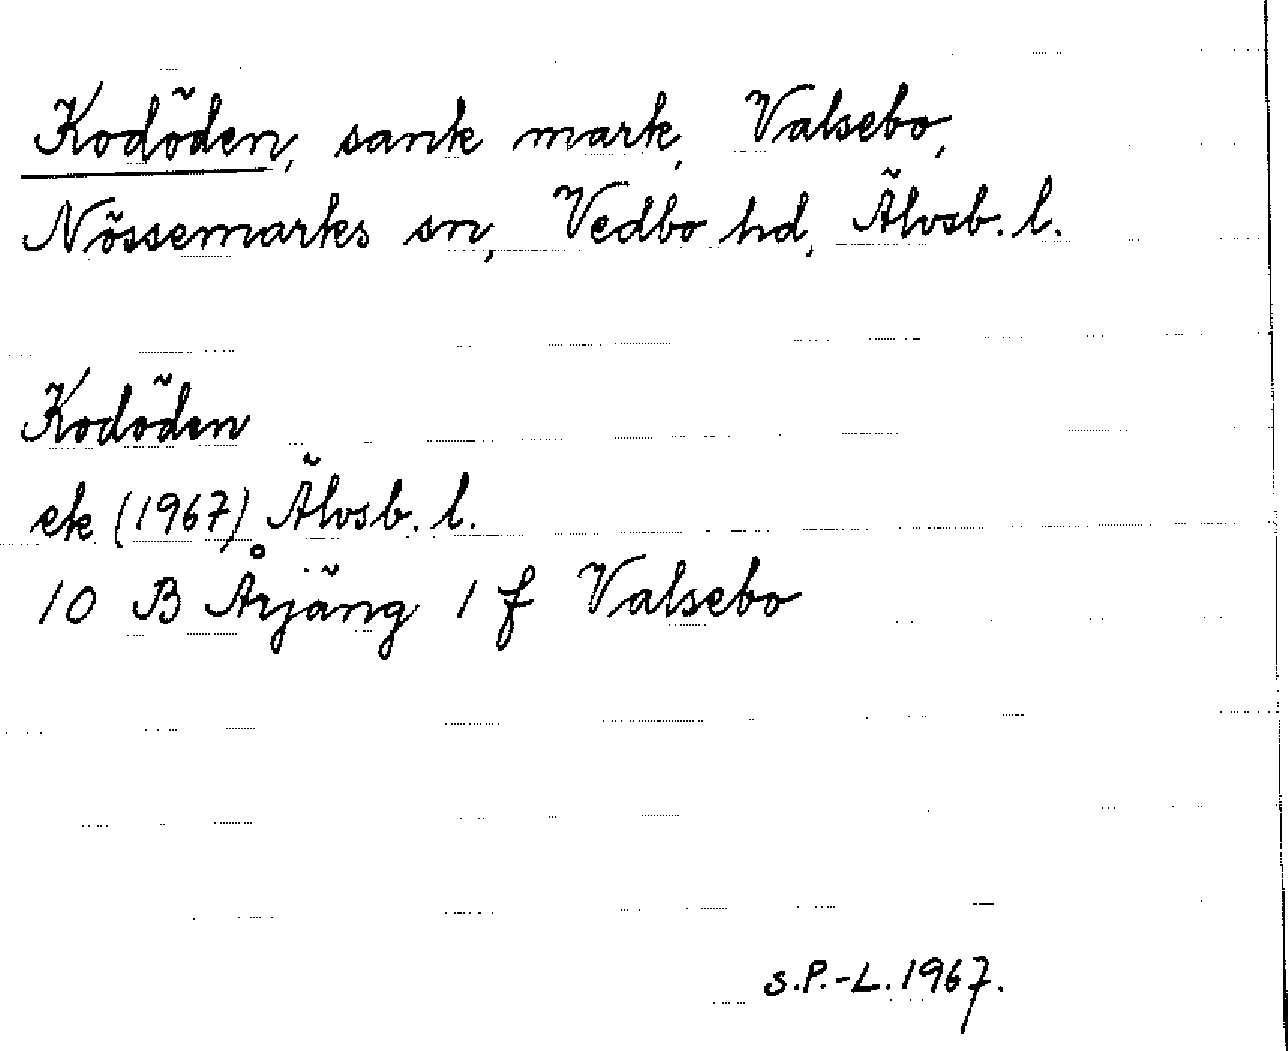 Kodöden, sank mark, Valsebo,
Nössemarks sn, Vedbo hd, Älvsb. l.
Kodöden
ek (1967) Älvsb. l.
10 B Årjäng 1 f Valsebo
S.P.-L. 1967.